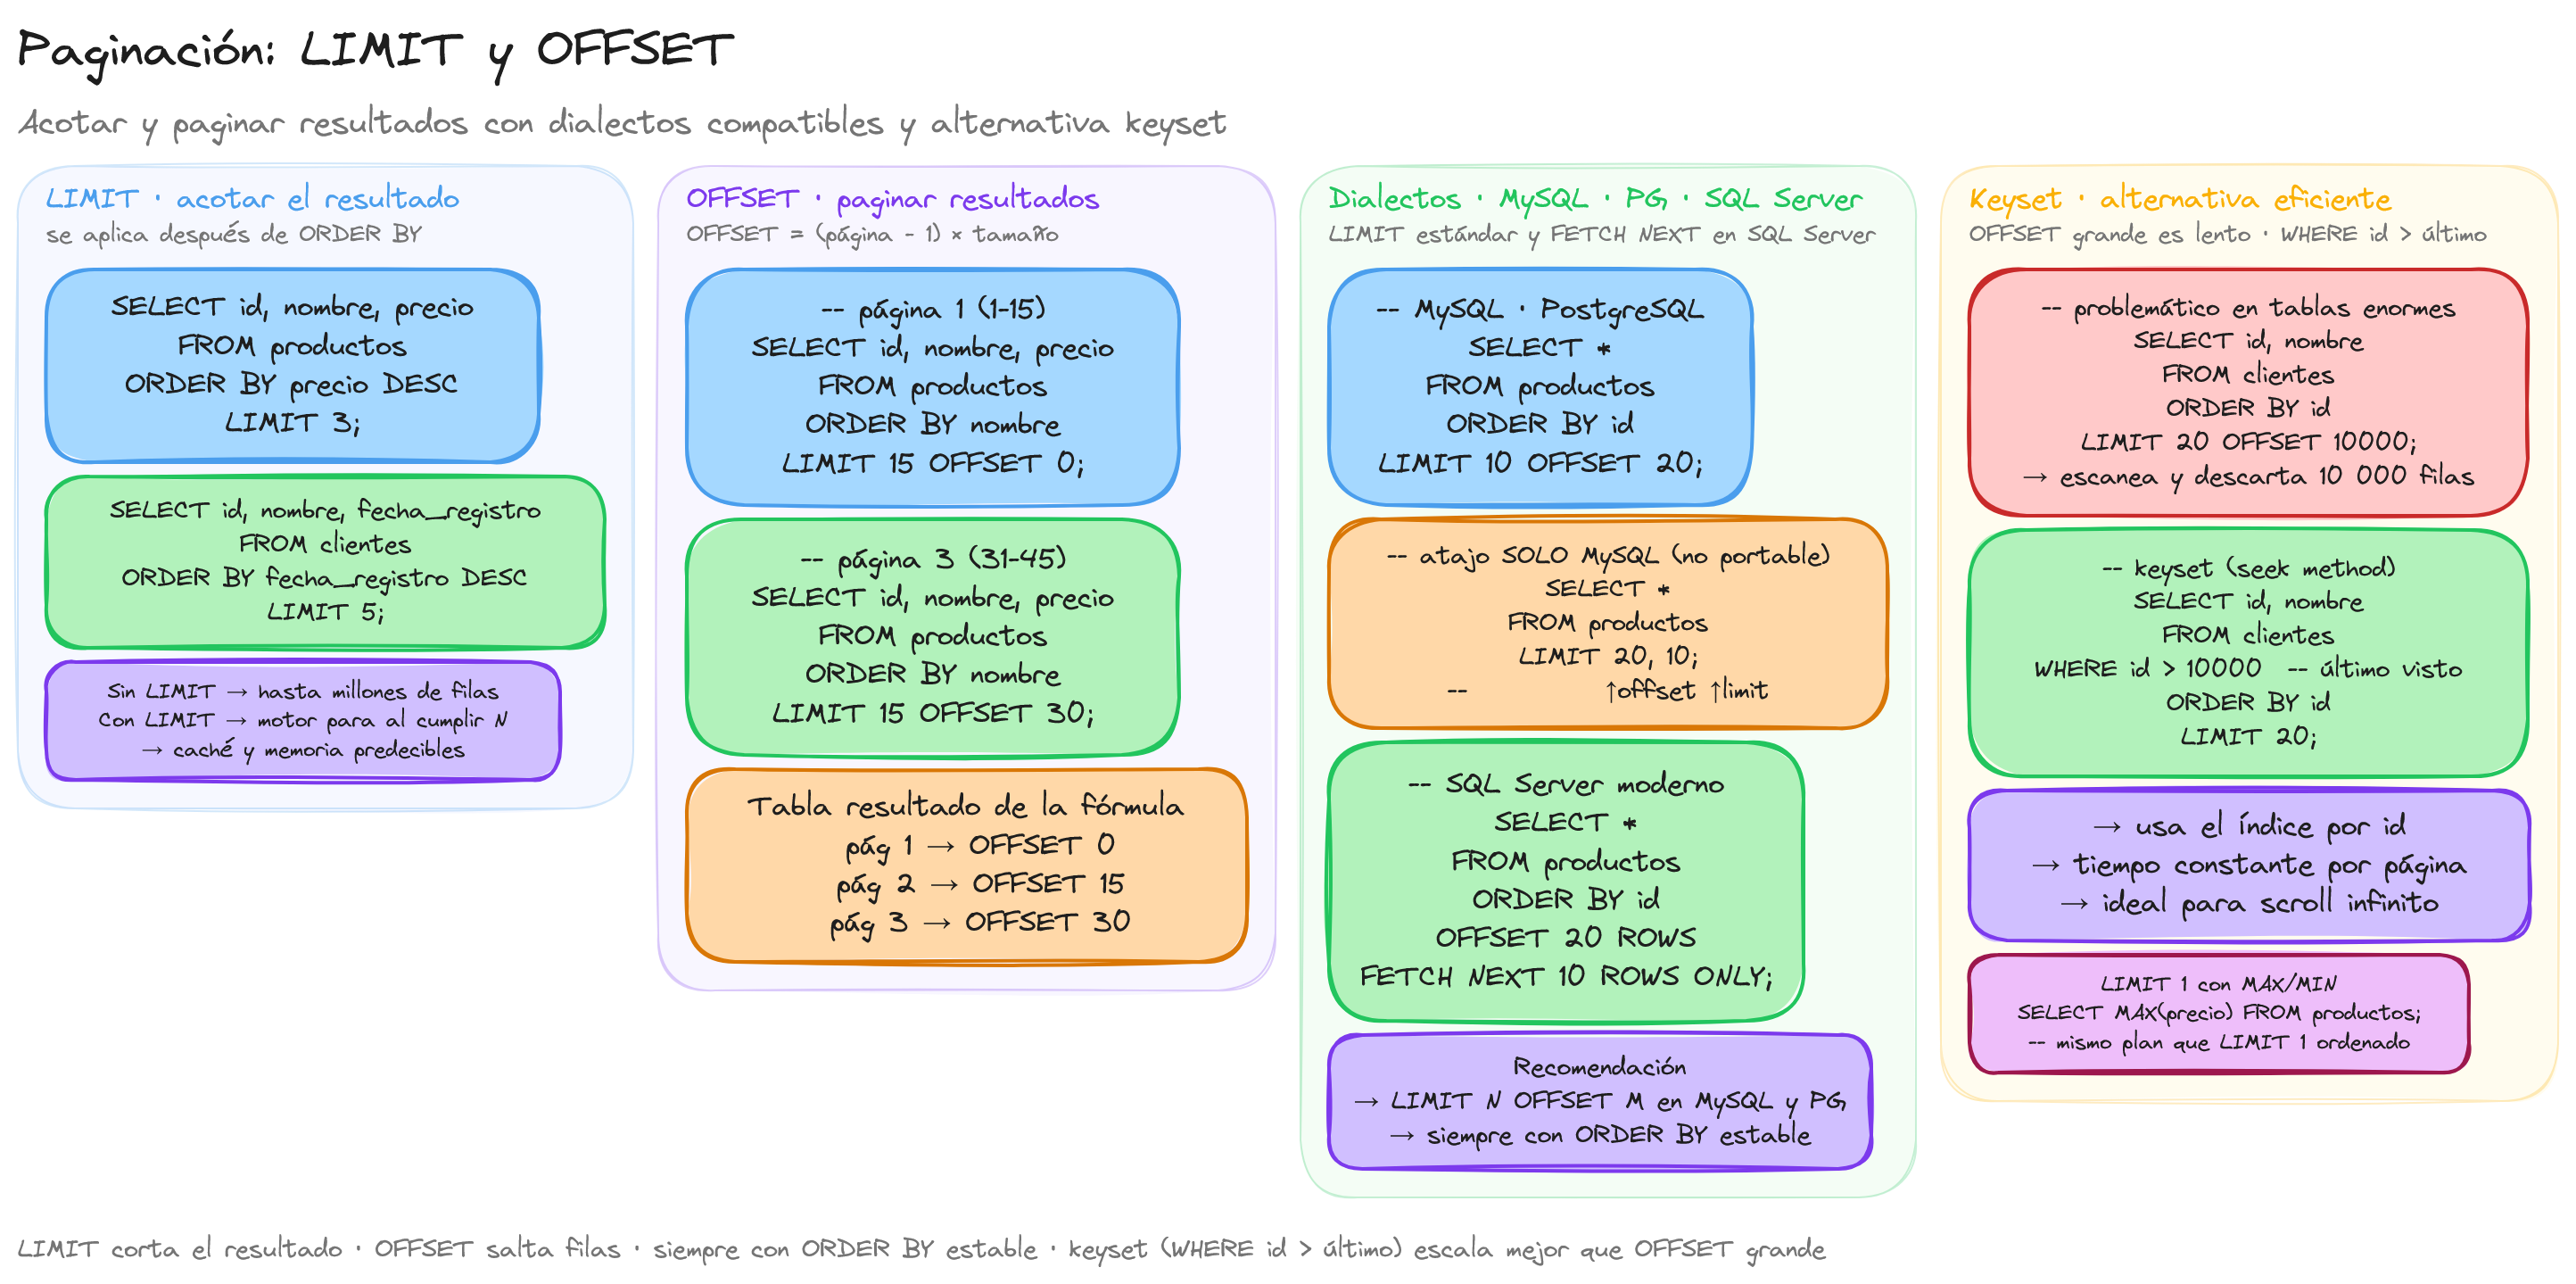 Paginación: LIMIT y OFFSET
Acotar y paginar resultados con dialectos compatibles y alternativa keyset
LIMIT · acotar el resultado
se aplica después de ORDER BY
SELECT id, nombre, precio
FROM productos
ORDER BY precio DESC
LIMIT 3;
SELECT id, nombre, fecha_registro
FROM clientes
ORDER BY fecha_registro DESC
LIMIT 5;
Sin LIMIT → hasta millones de filas
Con LIMIT → motor para al cumplir N
→ caché y memoria predecibles
OFFSET · paginar resultados
OFFSET = (página - 1) × tamaño
-- página 1 (1-15)
SELECT id, nombre, precio
FROM productos
ORDER BY nombre
LIMIT 15 OFFSET 0;
-- página 3 (31-45)
SELECT id, nombre, precio
FROM productos
ORDER BY nombre
LIMIT 15 OFFSET 30;
Tabla resultado de la fórmula
pág 1 → OFFSET 0
pág 2 → OFFSET 15
pág 3 → OFFSET 30
Dialectos · MySQL · PG · SQL Server
LIMIT estándar y FETCH NEXT en SQL Server
-- MySQL · PostgreSQL
SELECT *
FROM productos
ORDER BY id
LIMIT 10 OFFSET 20;
-- atajo SOLO MySQL (no portable)
SELECT *
FROM productos
LIMIT 20, 10;
-- ↑offset ↑limit
-- SQL Server moderno
SELECT *
FROM productos
ORDER BY id
OFFSET 20 ROWS
FETCH NEXT 10 ROWS ONLY;
Recomendación
→ LIMIT N OFFSET M en MySQL y PG
→ siempre con ORDER BY estable
Keyset · alternativa eficiente
OFFSET grande es lento · WHERE id > último
-- problemático en tablas enormes
SELECT id, nombre
FROM clientes
ORDER BY id
LIMIT 20 OFFSET 10000;
→ escanea y descarta 10 000 filas
-- keyset (seek method)
SELECT id, nombre
FROM clientes
WHERE id > 10000 -- último visto
ORDER BY id
LIMIT 20;
→ usa el índice por id
→ tiempo constante por página
→ ideal para scroll infinito
LIMIT 1 con MAX/MIN
SELECT MAX(precio) FROM productos;
-- mismo plan que LIMIT 1 ordenado
LIMIT corta el resultado · OFFSET salta filas · siempre con ORDER BY estable · keyset (WHERE id > último) escala mejor que OFFSET grande